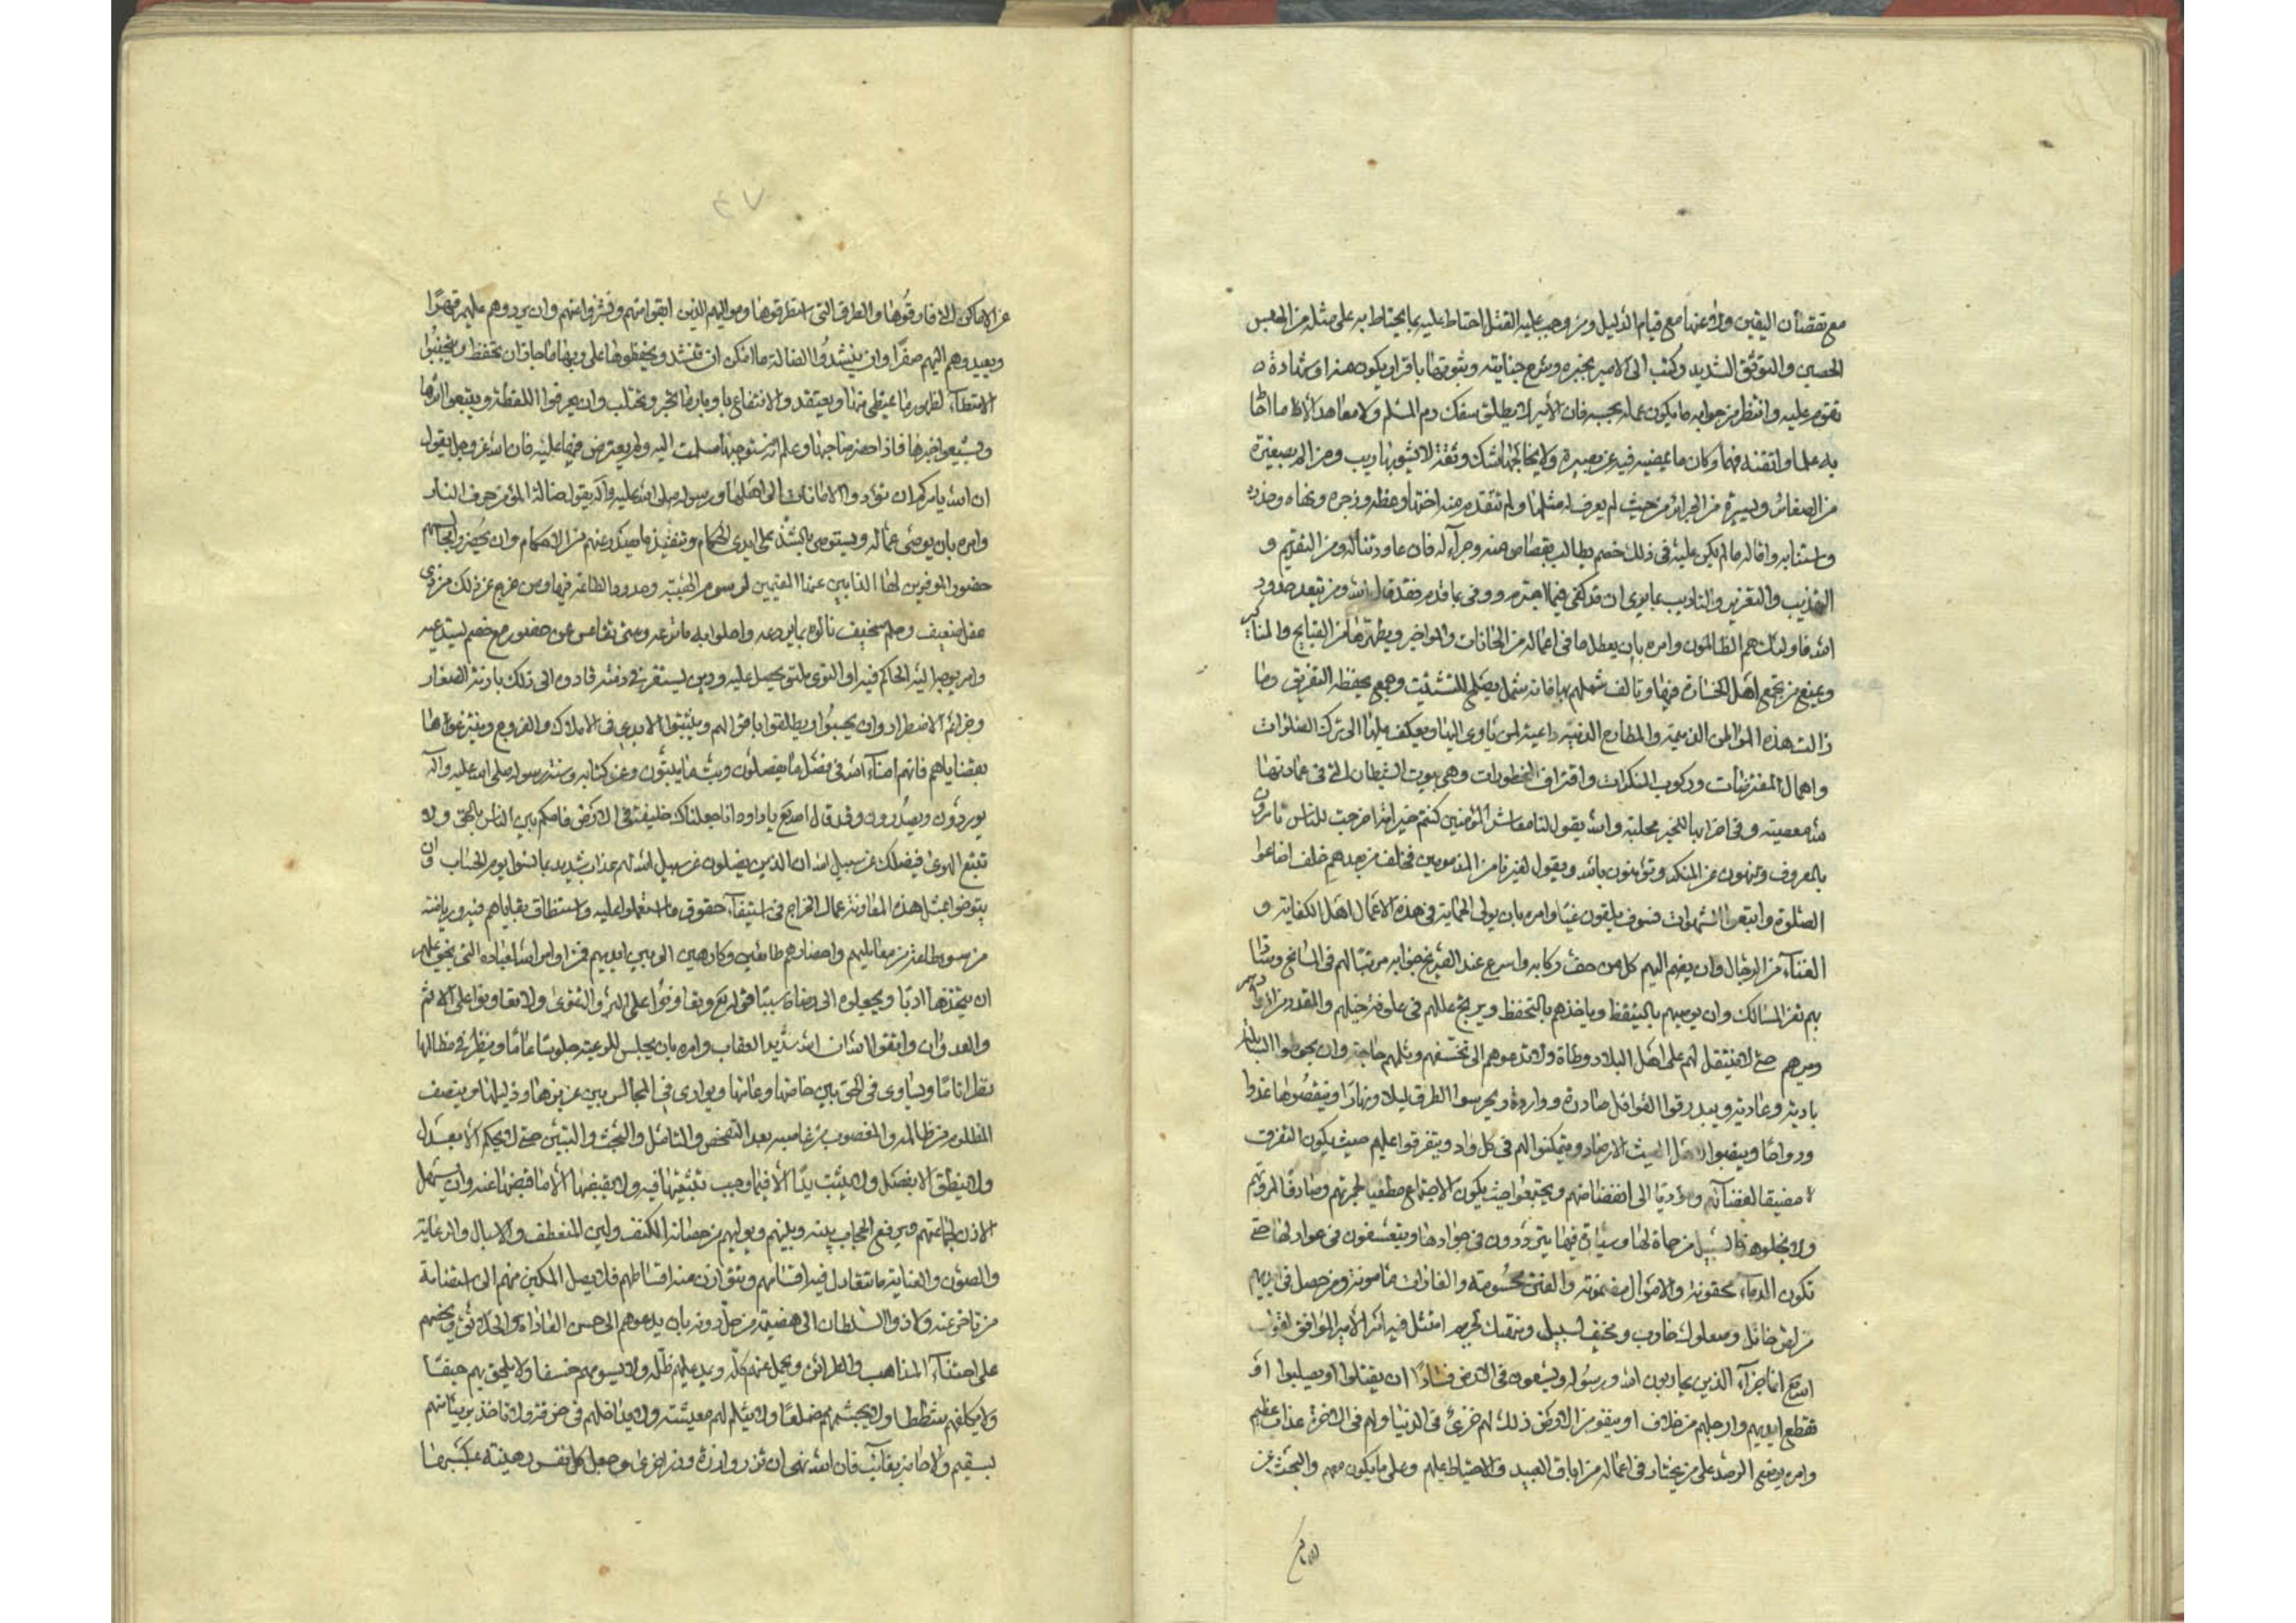 مع نقصان اليقين ولا عنها مع قيام الدليل ومن وجب عليه القتل احتاط عليه بما يحتاط به على مثله من الحبس
الحصين والتوثق الشديد وكتب الى الامير بخبره وشرح جنايته وثبوتها باقرار يكون منه او شهادة
تقوم عليه وانتظر من جوابه ما يكون عمله بحسبه فان الامير لا يطلق سفك دم المسلم ولا معاهد الا ما احاط
به علما واتقنه فهما وكان ما يمضيه فيه عن بصيرة ولا يخالجها شك وثقة لا يشوبها ريب ومن الم بصغيرة
من الصغائر ويسيرة من الجرائر من حيث لم يعرف له مثلها ولم تتقدم منه اختها وعظه وزجره ونهاه وحذره
واستتابه واقاله ما لم يكن عليه في ذلك خصم يطالب بقصاص منه وجزآء له فان عاود تناله من التقويم و
التهذيب والتعزير والتاديب بما يرى ان قد كفى فيما اجترم ووفى بما قدم فقد قال الله ومن يتعد حدود
الله فاولئك هم الظالمون وامره بان يعطل ما في اعماله من الحانات والمواخير ويطهرها من القبايح والمناكير
ويمنع من تجمع اهل الخسارة فيها وتالف شملهم بها فانه شمل يصلحه التشتيت وجمع يحفظه التفريق وما
زالت هذه المواطن الذميمة والمطارح الدنية داعية لمن ياوى اليها ويعكف عليها الى ترك الصلوات
واهمال المفترضات وركوب المنكرات واقتراف المحظورات وهي بيوت الشيطان التي في عمارتها
لله معصية وفي اخرابها للخير مجلبة والله يقول لنا معاشر المؤمنين كنتم خير امة اخرجت للناس تامرون
بالمعروف وتنهون عن المنكر وتؤمنون بالله ويقول لغيرنا من المذمومين فخلف من بعدهم خلف اضاعوا
الصلوة واتبعوا الشهوات فسوف يلقون غيا وامره بان يولى الحماية في هذه الاعمال اهل الكفاية و
الغنآء من الرجال وان يضم اليهم كل من خف ركابه واسرع عند الصريخ جوابه مرتبا لهم في المسالح وسادا
بهم ثغر المسالك وان يوصيهم بالتيقظ وياخذهم بالتحفظ ويزيح عللهم في علوفة خيلهم والمقدر من ازوادهم
وميرهم حتى لا تثقل لهم على اهل البلاد وطاة ولا تدعوهم الى تخشفهم وثلمهم حاجة وان يحوطوا السابلة
بادية وعادية ويبدرقوا القوافل صادرة وواردة ويحرسوا الطرق ليلا ونهارا ويتقصوها غدوا
ورواحا وينصبوا لاهل العيث الارصاد ويتمكنوا لهم في كل واد ويتفرقوا عليهم حيث يكون التفرق
مضيقا لفضآئهم ومؤديا الى انفضاضهم ويجتمعوا حيث يكون الاجتماع مطفيا لجمرتهم وصادعا لمروتهم
ولا يخلوا هذه السبل من حماة لها وسيارة فيها يترددون في جوادها ويتعسفون في عوادلها حتى
تكون الدماء محقونة والاموال مضمونة والفتن محسومة والغارات مامونة ومن حصل في ايديهم
من لص خاتل وصعلوك خارب ومخيف لسبيل ومنتهك لحريم امتثل فيه امر الامير الموافق لقول
الله تع انما جزآء الذين يحاربون الله ورسوله ويسعون في الارض فسادا ان يقتلوا او يصلبوا او
تقطع ايديهم وارجلهم من خلاف او ينفوا من الارض ذلك لهم خزى في الدنيا ولهم في الاخرة عذاب عظيم
وامره بوضع الرصد على من يجتاز في اعماله من اباق العبيد والاحتياط عليهم وعلى ما يكون معهم والبحث عن
الاماكن
٧٤
عن الاماكن التي فارقوها والطرق التي استطرقوها ومواليهم الذين ابقوا منهم ونشزوا عنهم وان يردوهم عليهم قهرا
ويعيدوهم اليهم صغرا وان ينشدوا الضالة ما امكن ان تنشد ويحفظوها على ربها ما جاز ان تحفظ ويتجنبوا
الامتطآء لظهور ما يمتطى منها ويعتقد والانتفاع باوبار ما يجز ويحتلب وان يعرفوا اللقطة ويتبعوا اثرها
ويشيعوا خبرها فاذا حضر صاحبها وعلم انه مستوجبها سلمت اليه ولم يعترض فيها عليه فان الله عز وجل يقول
ان الله يامركم ان تؤدوا الامانات الى اهلها ورسوله صلى الله عليه وآله يقول ضالة المؤمن حرق النار
وامره بان يوصى عماله ويستوصى بالشد على ايدى الحكام وتنفيذ ما يصدر عنهم من الاحكام وان يحضروا مجالسهم
حضور الموقرين لها الذابين عنها المقيمين لرسوم الهيبة وحدود الطاعة فيها ومن خرج عن ذلك من ذى
عقل ضعيف وحلم سخيف نالوه بما يردعه واحلوا به ما يزعه ومتى تقاعس عن حضور مع خصم يستدعيه
وامر يوجه اليه الحاكم فيه او التوى ملتو يحصل عليه ودين يستقر في ذمته قادوه الى ذلك بازمة الصغار
وخزائم الاضطرار وان يحبسوا ويطلقوا باقوالهم ويثبتوا الايدى في الاملاك والفروج وينتزعوها
بقضاياهم فانهم امنآء الله في فصل ما يفصلون وبث ما يبتون وعن كتابه وسنة رسوله صلى الله عليه وآله
يوردون ويصدرون وقد قال الله تع يا داود انا جعلناك خليفة في الارض فاحكم بين الناس بالحق ولا
تتبع الهوى فيضلك عن سبيل الله ان الذين يضلون عن سبيل الله لهم عذاب شديد بما نسوا يوم الحساب وان
يتوخوا بمثل هذه المعاونة عمال الخراج في استيفآء حقوق ما استعملوا عليه واستنظاف بقاياهم فيه ورياضة
من تسوء طاعته من معامليهم واحضارهم طائعين وكارهين الى بين ايديهم فمن اداب الله لعباده التي يحق عليهم
ان يتخذوها ادبا ويجعلوه الى رضاه سببا قوله تع وتعاونوا على البر والتقوى ولا تعاونوا على الاثم
والعدوان واتقوا الله ان الله شديد العقاب وامره بان يجلس للرعية جلوسا عاما وينظر في مظالمها
نظرا تاما ويساوى في الحق بين خاصها وعامها ويوازى في المجالس بين عزيزها وذليلها وينصف
المظلوم من ظالمه والمغصوب من غاصبه بعد التفحص والتامل والبحث والتبين حتى لا يحكم الا بعدل
ولا ينطق الا بفصل ولا يثبت يدا الا فيما وجب تثبيتها فيه ولا يقبضها الا مما قبضها عنه وان يسهل
الاذن لجماعتهم ويرفع الحجاب بينه وبينهم ويوليهم من حصانة الكنف ولين المنعطف والاشبال والرعاية
والصون والعناية ما تتعادل فيه اقسامهم وتتوازن منه اقساطهم فلا يصل المكين منهم الى استضامة
من تاخر عنه ولا ذو السلطان الى هضيمة من حل دونه بان يدعوهم الى حسن العادات والخلائق ويحضهم
على احتذآء المذاهب والطرائق ويحمل عنهم كله ويمد عليهم ظله ولا يسومهم خسفا ولا يلحق بهم حيفا
ولا يكلفهم شططا ولا يجشمهم مضلعا ولا يثلم لهم معيشة ولا يداخلهم في حرفة ولا ياخذ بريئا منهم
بسقيم ولا حاضرا بغائب فان الله نهى ان تزر وازرة وزر اخرى وجعل كل نفس رهينة بمكسبها